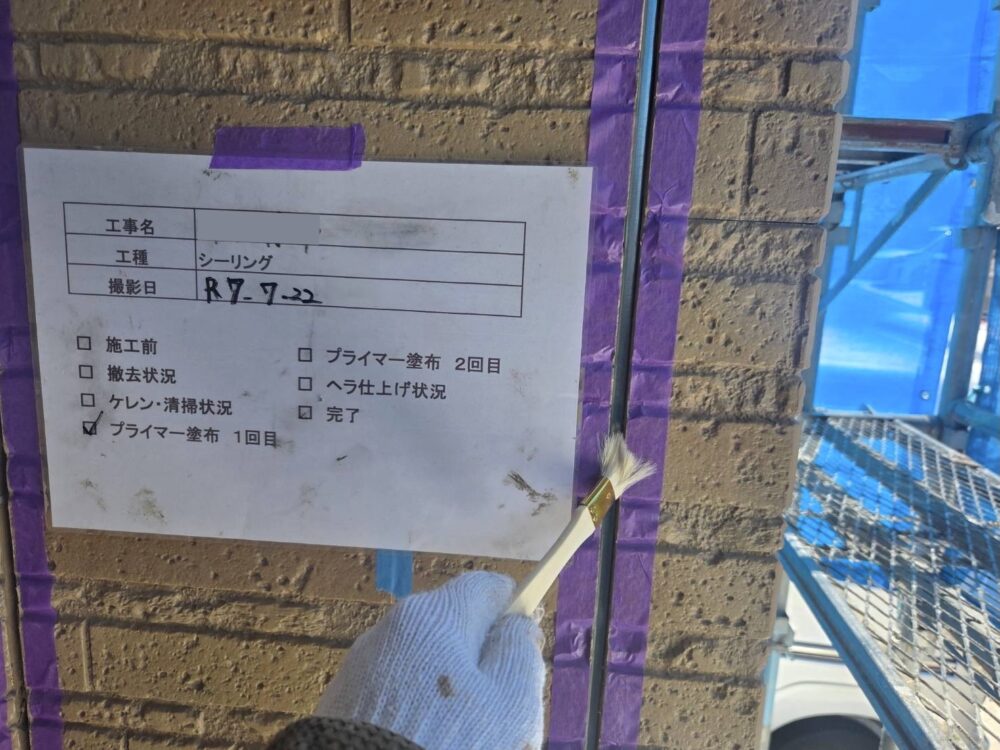 工事名
工種 シーリング
撮影日 R7-7-22
□ 施工前
□ 撤去状況
□ ケレン・清掃状況
☑ プライマー塗布 1回目
□ プライマー塗布 2回目
□ ヘラ仕上げ状況
□ 完了